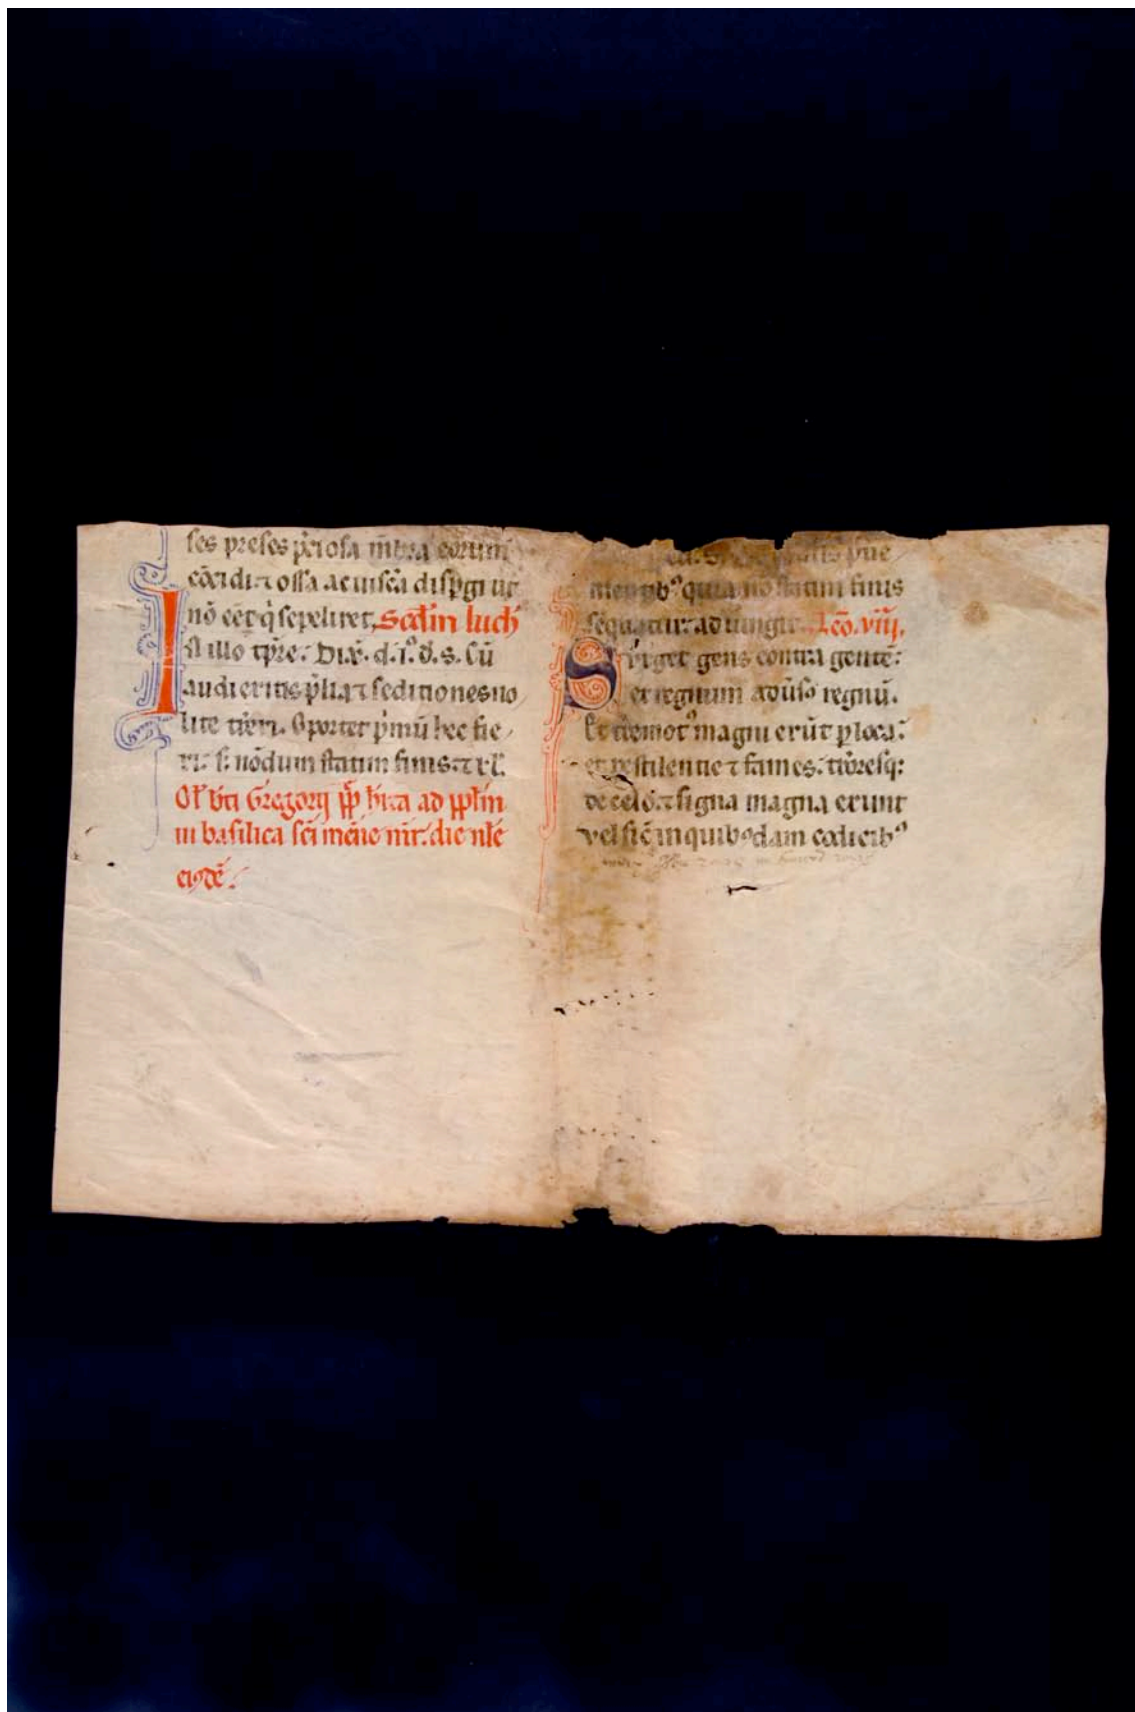 ses preses p̄ciosa mēbra eorum
cōcidi ⁊ ossa ac uiscēa disp̄gi ut
nō eēt q̇ sepeliret. Sēd̄m luch̄
In illo tp̄re. Dix̄. d. i⁹. d̄. s. Cū
audieritis p̄lia ⁊ seditiones no
lite t̄reri. Oportet p̄mū hec fie
ri. s; nōdum statim finis. ⁊ rl̄.
Oł b̄ti Gregorij p̄p̄ h̄ita ad pp̄łm
in basilica sc̄i mēne m̄r. die nłe
ei⁹dē.
mentib⁹ quia nō statim finis
sequatur: adiungit. Leō. viij.
Surget gens contra gentē:
et regnum adūs⁹ regnū.
Et t̄remot⁹ magni erūt p̱ loca:
et pestilentie ⁊ fames. t̄roresq;
de celo. ⁊ signa magna erunt
vel sic̄ in quib⁹dam codicib⁹